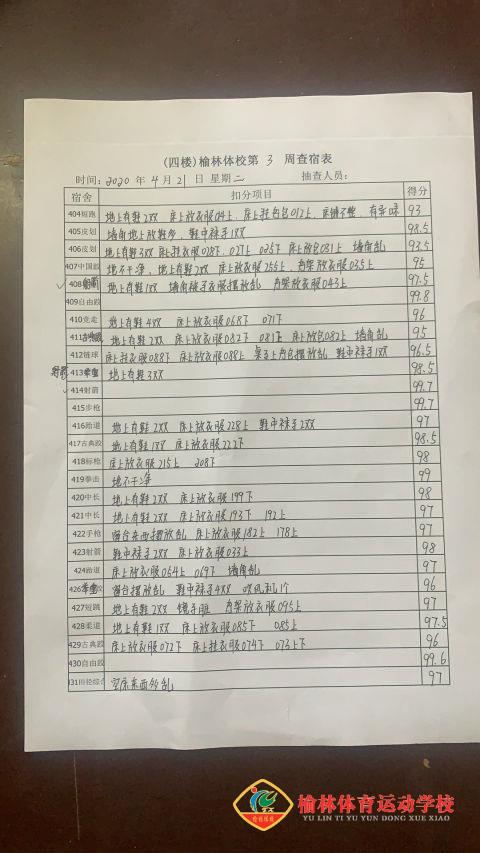 (四楼) 榆林体校第 3 周查宿表
时间: 2020 年 4 月 21 日 星期 二 抽查人员:
宿舍 扣分项目 得分
404短跑 地上有鞋2双 床上放衣服04上、床上挂内包012上、床铺不整、有异味 93
405皮划 墙角地上放鞋多、鞋中袜子1双 98.5
406皮划 地上有鞋3双 床上挂衣服028下、027上 025下 床上放包081上 墙角乱 93.5
407中国跤 地不干净、地上有鞋2双 床上放衣服255上、为架放衣服035上 95
408射箭 地上有鞋1双 墙角袜子衣服摆放乱 为架放衣服043上 97.5
409自由跤 99.8
410竞走 地上有鞋4双 床上放衣服068下 071下 96
411 地上有鞋2双 床上放衣服082下 081上 床上放包082上 墙角乱 95
412链球 床上挂衣服088下 床上放衣服088上 桌子上内包摆放乱 鞋中袜子1双 96.5
413 地上有鞋3双 98.5
414射箭 99.7
415步枪 99.7
416跆道 地上有鞋2双 床上放衣服228上 鞋中袜子2双 97
417古典跤 地上有鞋1双 床上放衣服222下 98.5
418标枪 床上放衣服215上 208下 98
419拳击 地不干净 99
420中长 地上有鞋2双 床上放衣服199下 98
421中长 地上有鞋2双 床上放衣服193下 192上 97
422手枪 窗台东西摆放乱 床上放衣服182上 178上 97
423射箭 鞋中袜子2双 床上放衣服033上 98
424跆道 床上放衣服064上 069下 墙角乱 97
426 窗台摆放乱 鞋中袜子4双 吹风机1个 96
427短跳 地上有鞋2双 镜子脏 为架放衣服095上 97
428柔道 地上有鞋1双 床上放衣服085下 085上 97.5
429古典跤 床上放衣服072下 床上挂衣服074下 073上下 96
430自由跤 99.6
431田径综合 空床东西多乱 97
榆林体育运动学校
YU LIN TI YU YUN DONG XUE XIAO
榆林体校